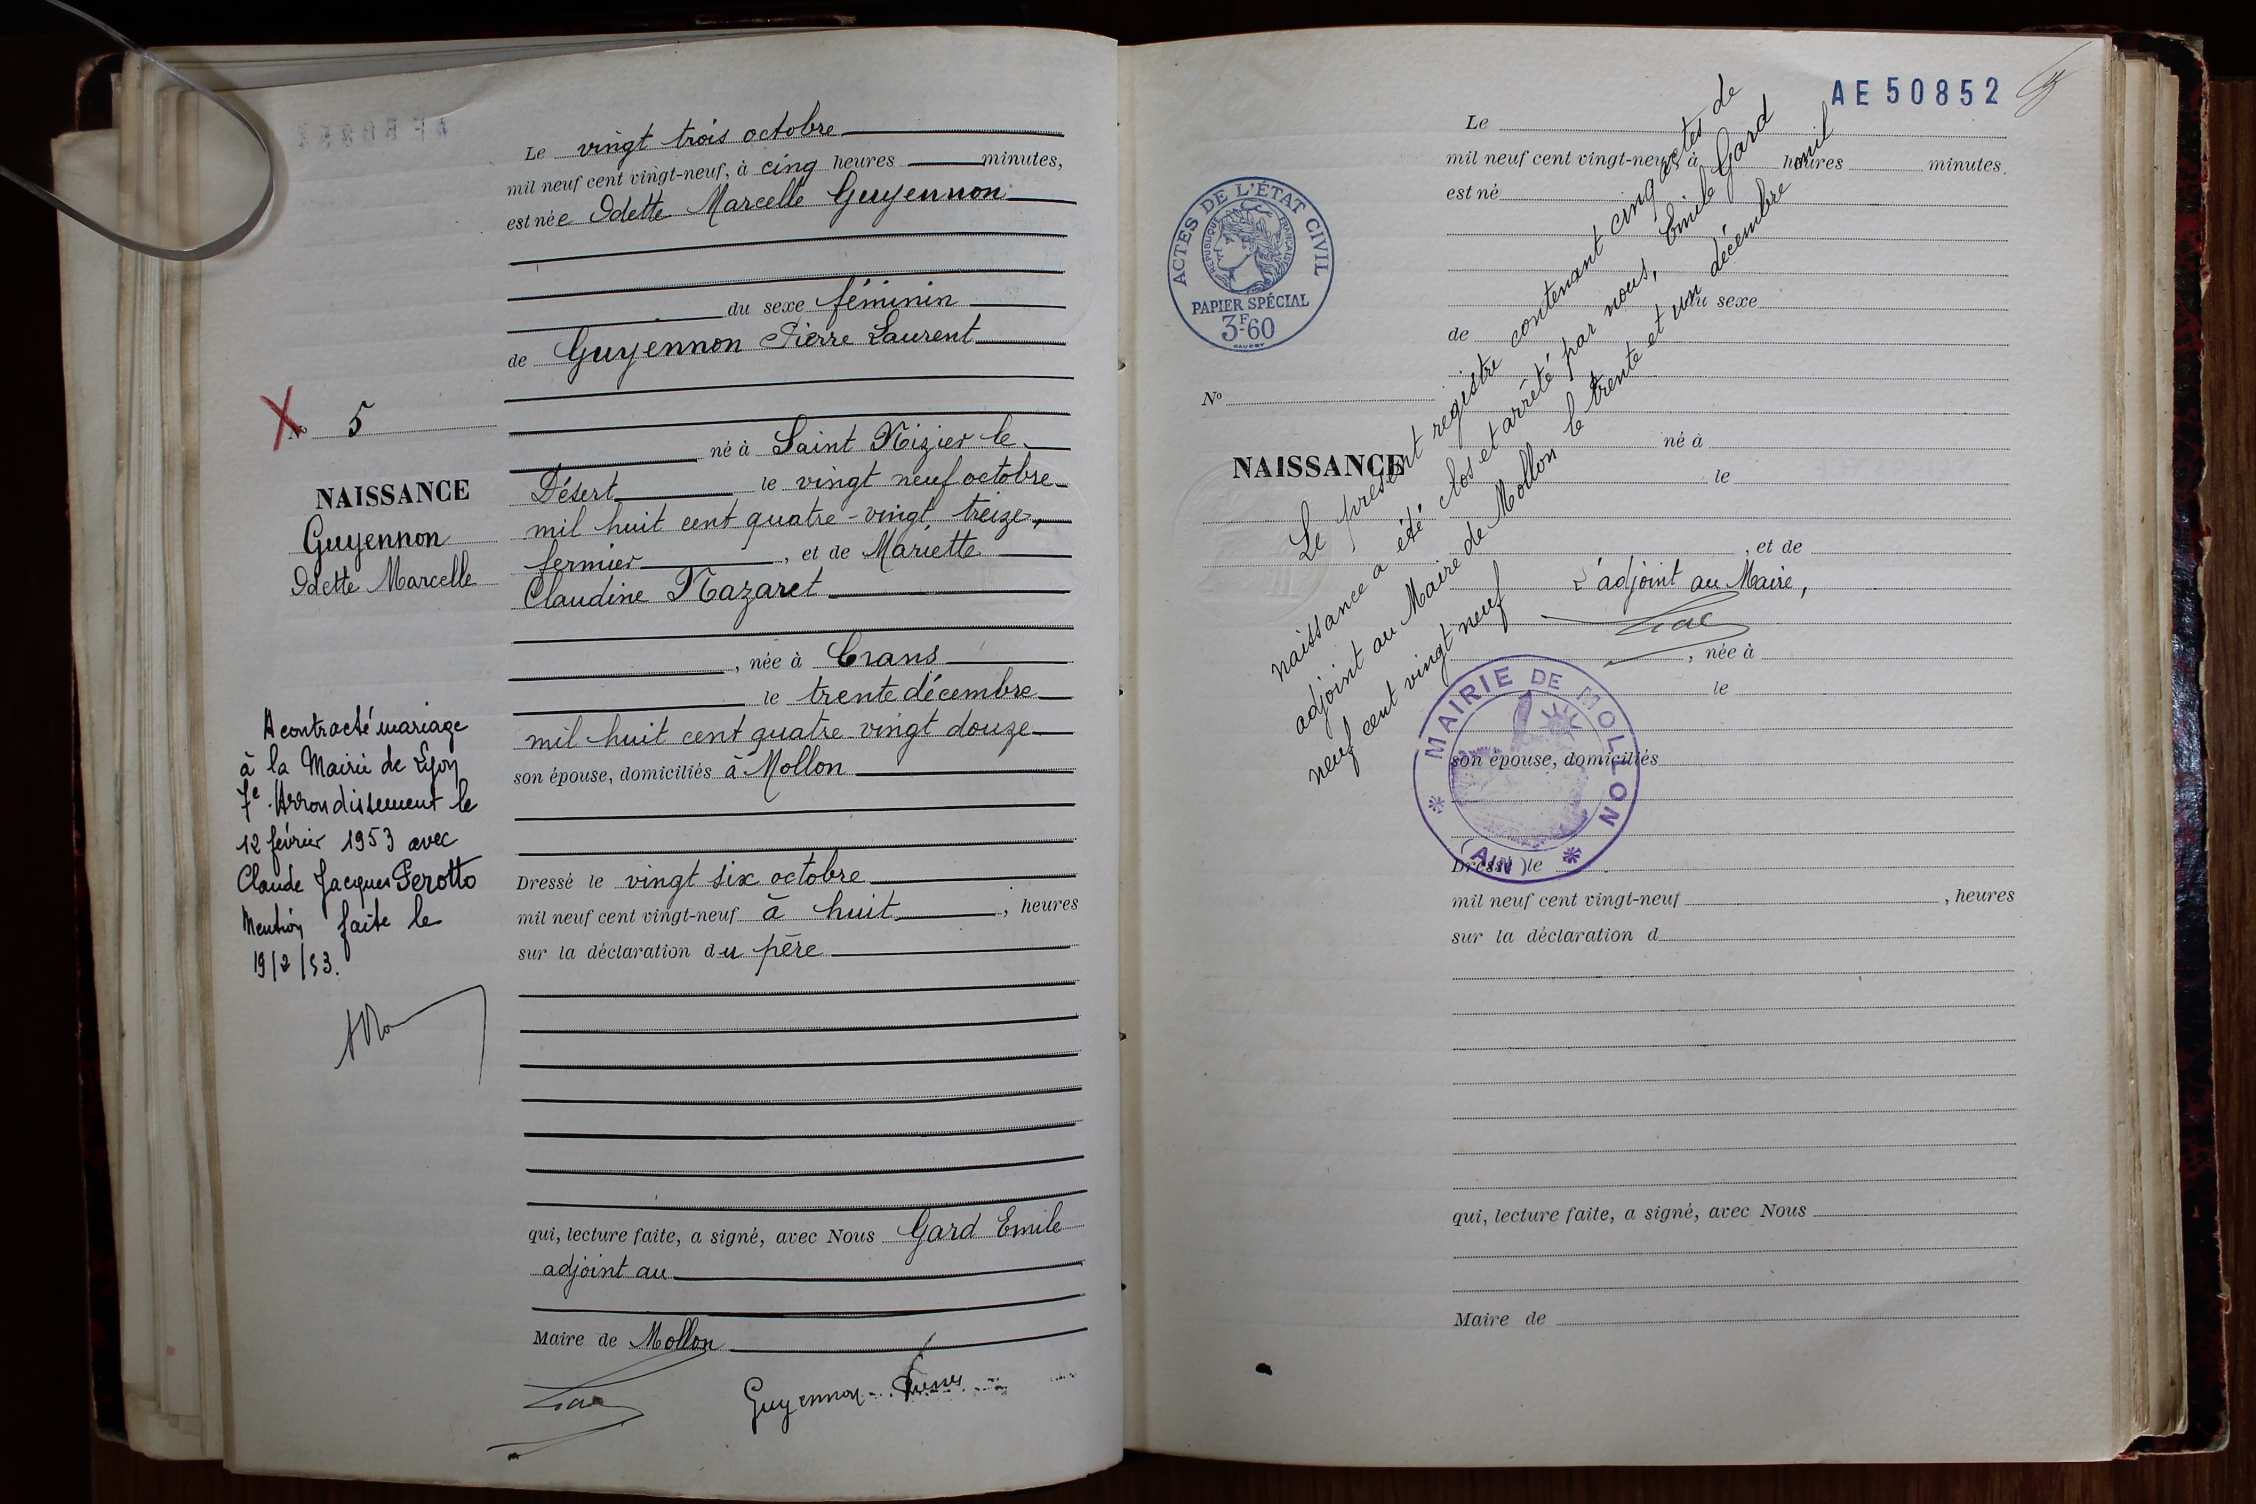 Le vingt trois octobre
mil neuf cent vingt-neuf, à cinq heures minutes,
est née Odette Marcelle Guyennon
du sexe féminin
de Guyennon Pierre Laurent
né à Saint Nizier le
Désert le vingt neuf octobre
mil huit cent quatre-vingt treize,
fermier, et de Mariette
Claudine Nazaret
, née à Crans
le trente décembre
mil huit cent quatre-vingt douze
son épouse, domiciliés à Mollon
Dressé le vingt six octobre
mil neuf cent vingt-neuf à huit, heures
sur la déclaration du père
qui, lecture faite, a signé, avec Nous Gard Emile
adjoint au
Maire de Mollon
Guyennon Pierre
No 5
NAISSANCE
Guyennon
Odette Marcelle
A contracté mariage
à la Mairie de Lyon
7e Arrondissement le
12 février 1953 avec
Claude Jacques Perotto
Mention faite le
19/2/53.
AE 50852
ACTES DE L'ÉTAT CIVIL
RÉPUBLIQUE FRANÇAISE
PAPIER SPÉCIAL
3F.60
Le
mil neuf cent vingt-neuf à heures minutes.
est né
du sexe
de
No
né à
NAISSANCE
le
, et de
, née à
le
son épouse, domiciliés
Dressé le
mil neuf cent vingt-neuf, heures
sur la déclaration d
qui, lecture faite, a signé, avec Nous
Maire de
Le présent registre contenant cinq actes de
naissance a été clos et arrêté par nous, Emile Gard
adjoint au Maire de Mollon le trente et un décembre mil
neuf cent vingt neuf
L'adjoint au Maire,
MAIRIE DE MOLLON
(AIN)